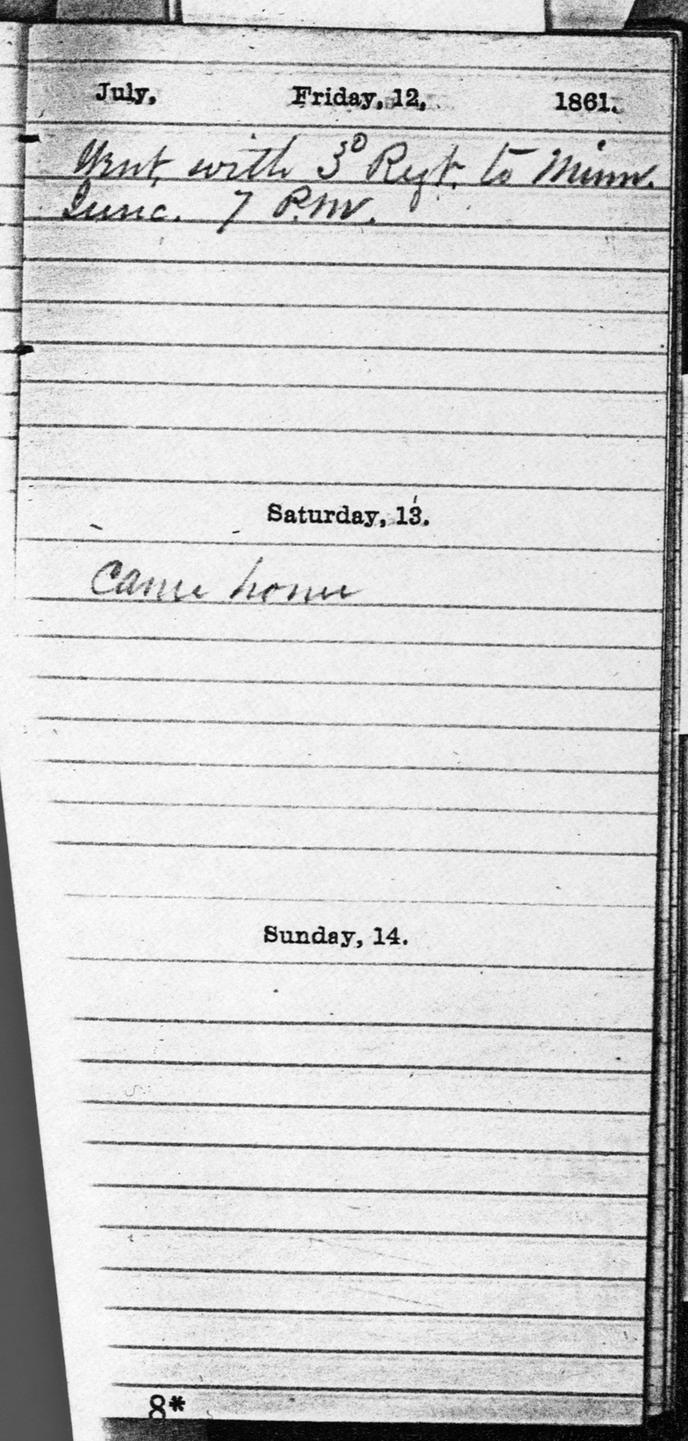 July, Friday, 12, 1861.
Went with 3D Regt. to Minn.
Junc. 7 P.M.
Saturday, 13.
Came home
Sunday, 14.
8*